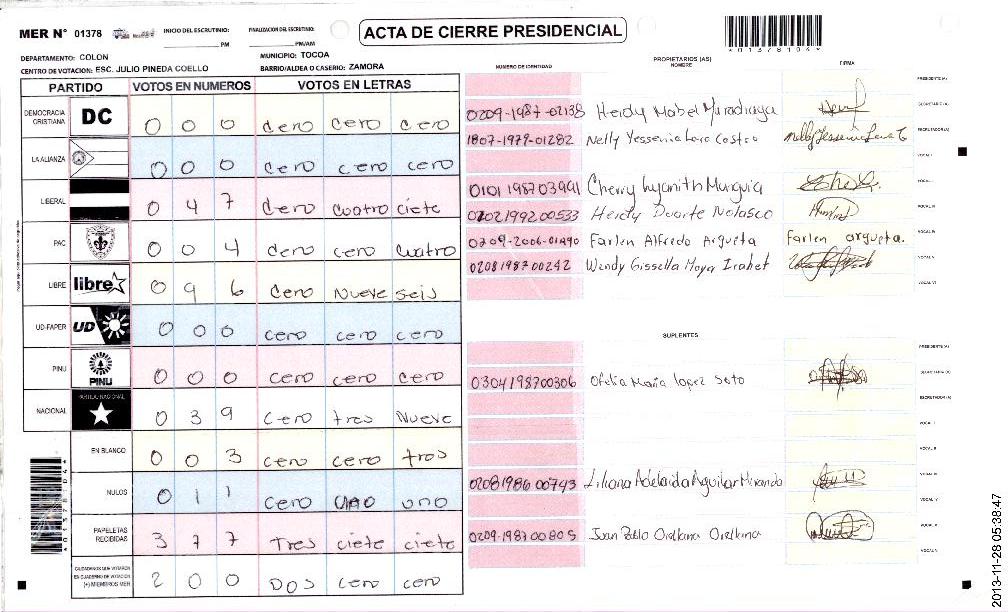 MER N° 01378
INICIO DEL ESCRUTINIO: PM
FINALIZACION DEL ESCRUTINIO: PM/AM
ACTA DE CIERRE PRESIDENCIAL
*01378104*
DEPARTAMENTO: COLON
MUNICIPIO: TOCOA
CENTRO DE VOTACION: ESC. JULIO PINEDA COELLO
BARRIO/ALDEA O CASERIO: ZAMORA
PARTIDO VOTOS EN NUMEROS VOTOS EN LETRAS
DEMOCRACIA CRISTIANA DC 0 0 0 cero cero cero
LA ALIANZA 0 0 0 cero cero cero
LIBERAL 0 4 7 cero cuatro ciete
PAC 0 0 4 cero cero cuatro
LIBRE libre 0 9 6 cero Nueve seis
UD-FAPER UD 0 0 0 cero cero cero
PINU PINU 0 0 0 cero cero cero
NACIONAL PARTIDO NACIONAL 0 3 9 cero tres Nueve
EN BLANCO 0 0 3 cero cero tres
NULOS 0 1 1 cero uno uno
PAPELETAS RECIBIDAS 3 7 7 Tres ciete ciete
CIUDADANOS QUE VOTARON EN CUADERNO DE VOTACION (+) MIEMBROS MER 2 0 0 DOS cero cero
NUMERO DE IDENTIDAD PROPIETARIOS (AS) NOMBRE FIRMA
PRESIDENTE (A)
0209-1987-02138 Heidy Mabel SECRETARIO (A)
1807-1979-01282 Nelly Yessenia Lara Castro ESCRUTADOR (A)
VOCAL I
0101198703991 Cherry VOCAL II
0202199200533 Heidy Duarte Nolasco VOCAL III
0209-2006-01490 Farlen Alfredo Argueta Farlen argueta. VOCAL IV
0208198700242 Wendy Gissella Moya VOCAL V
VOCAL VI
SUPLENTES
PRESIDENTE (A)
0304198700306 Ofelia Maria lopez Soto SECRETARIO (A)
ESCRUTADOR (A)
VOCAL I
VOCAL II
0208198600743 Liliana Adelaida Aguilar Miranda VOCAL III
VOCAL IV
0209-198700805 Juan Pablo Orellana Orellana VOCAL V
VOCAL VI
*01378104*
2013-11-28 05:38:47